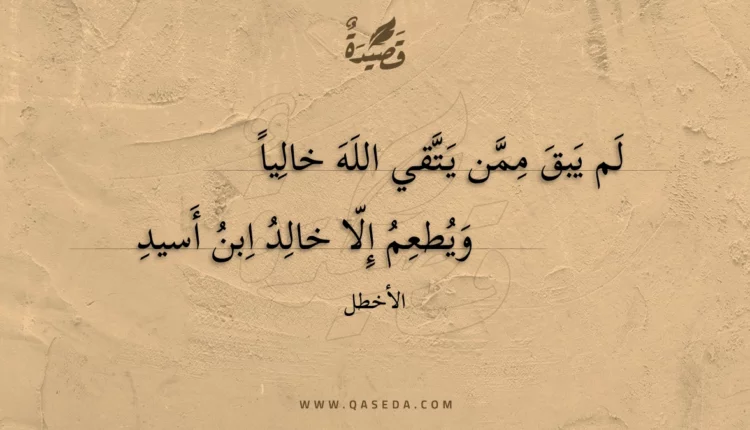 قَصِيدَةٌ
لَم يَبقَ مِمَّن يَتَّقي اللَهَ خالِياً
وَيُطعِمُ إِلّا خالِدُ اِبنُ أَسيدِ
الأخطل
WWW.QASEDA.COM